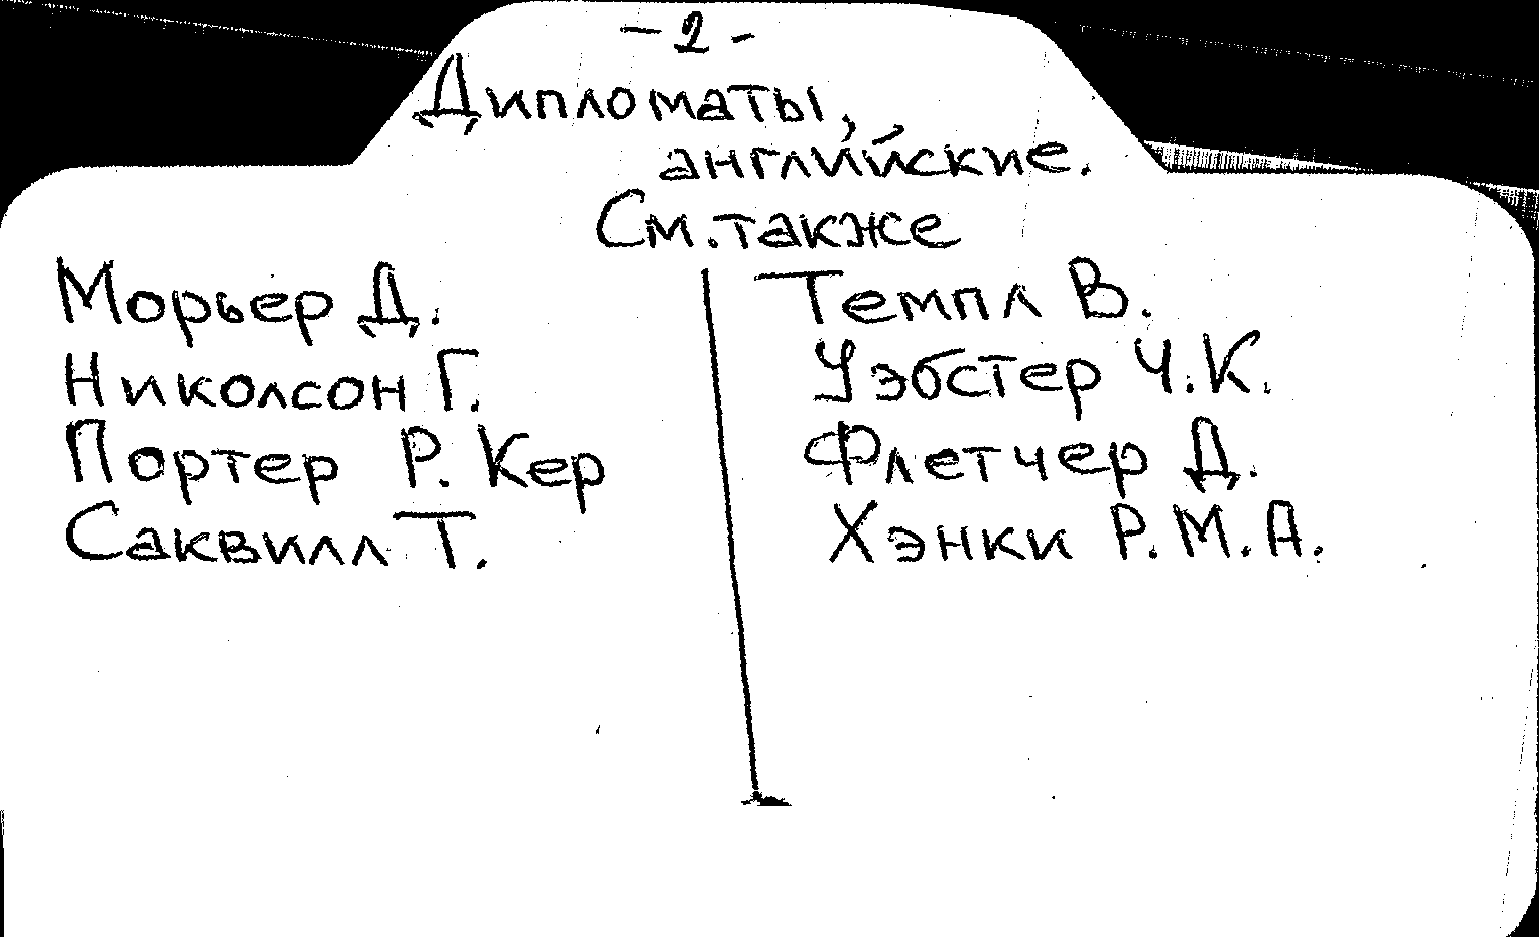 - 2 -
Дипломаты,
английские.
См. также
Морьер Д.
Николсон Г.
Портер Р. Кер
Саквилл Т.
Темпл В.
Уэбстер Ч.К.
Флетчер Д.
Хэнки Р.М.А.